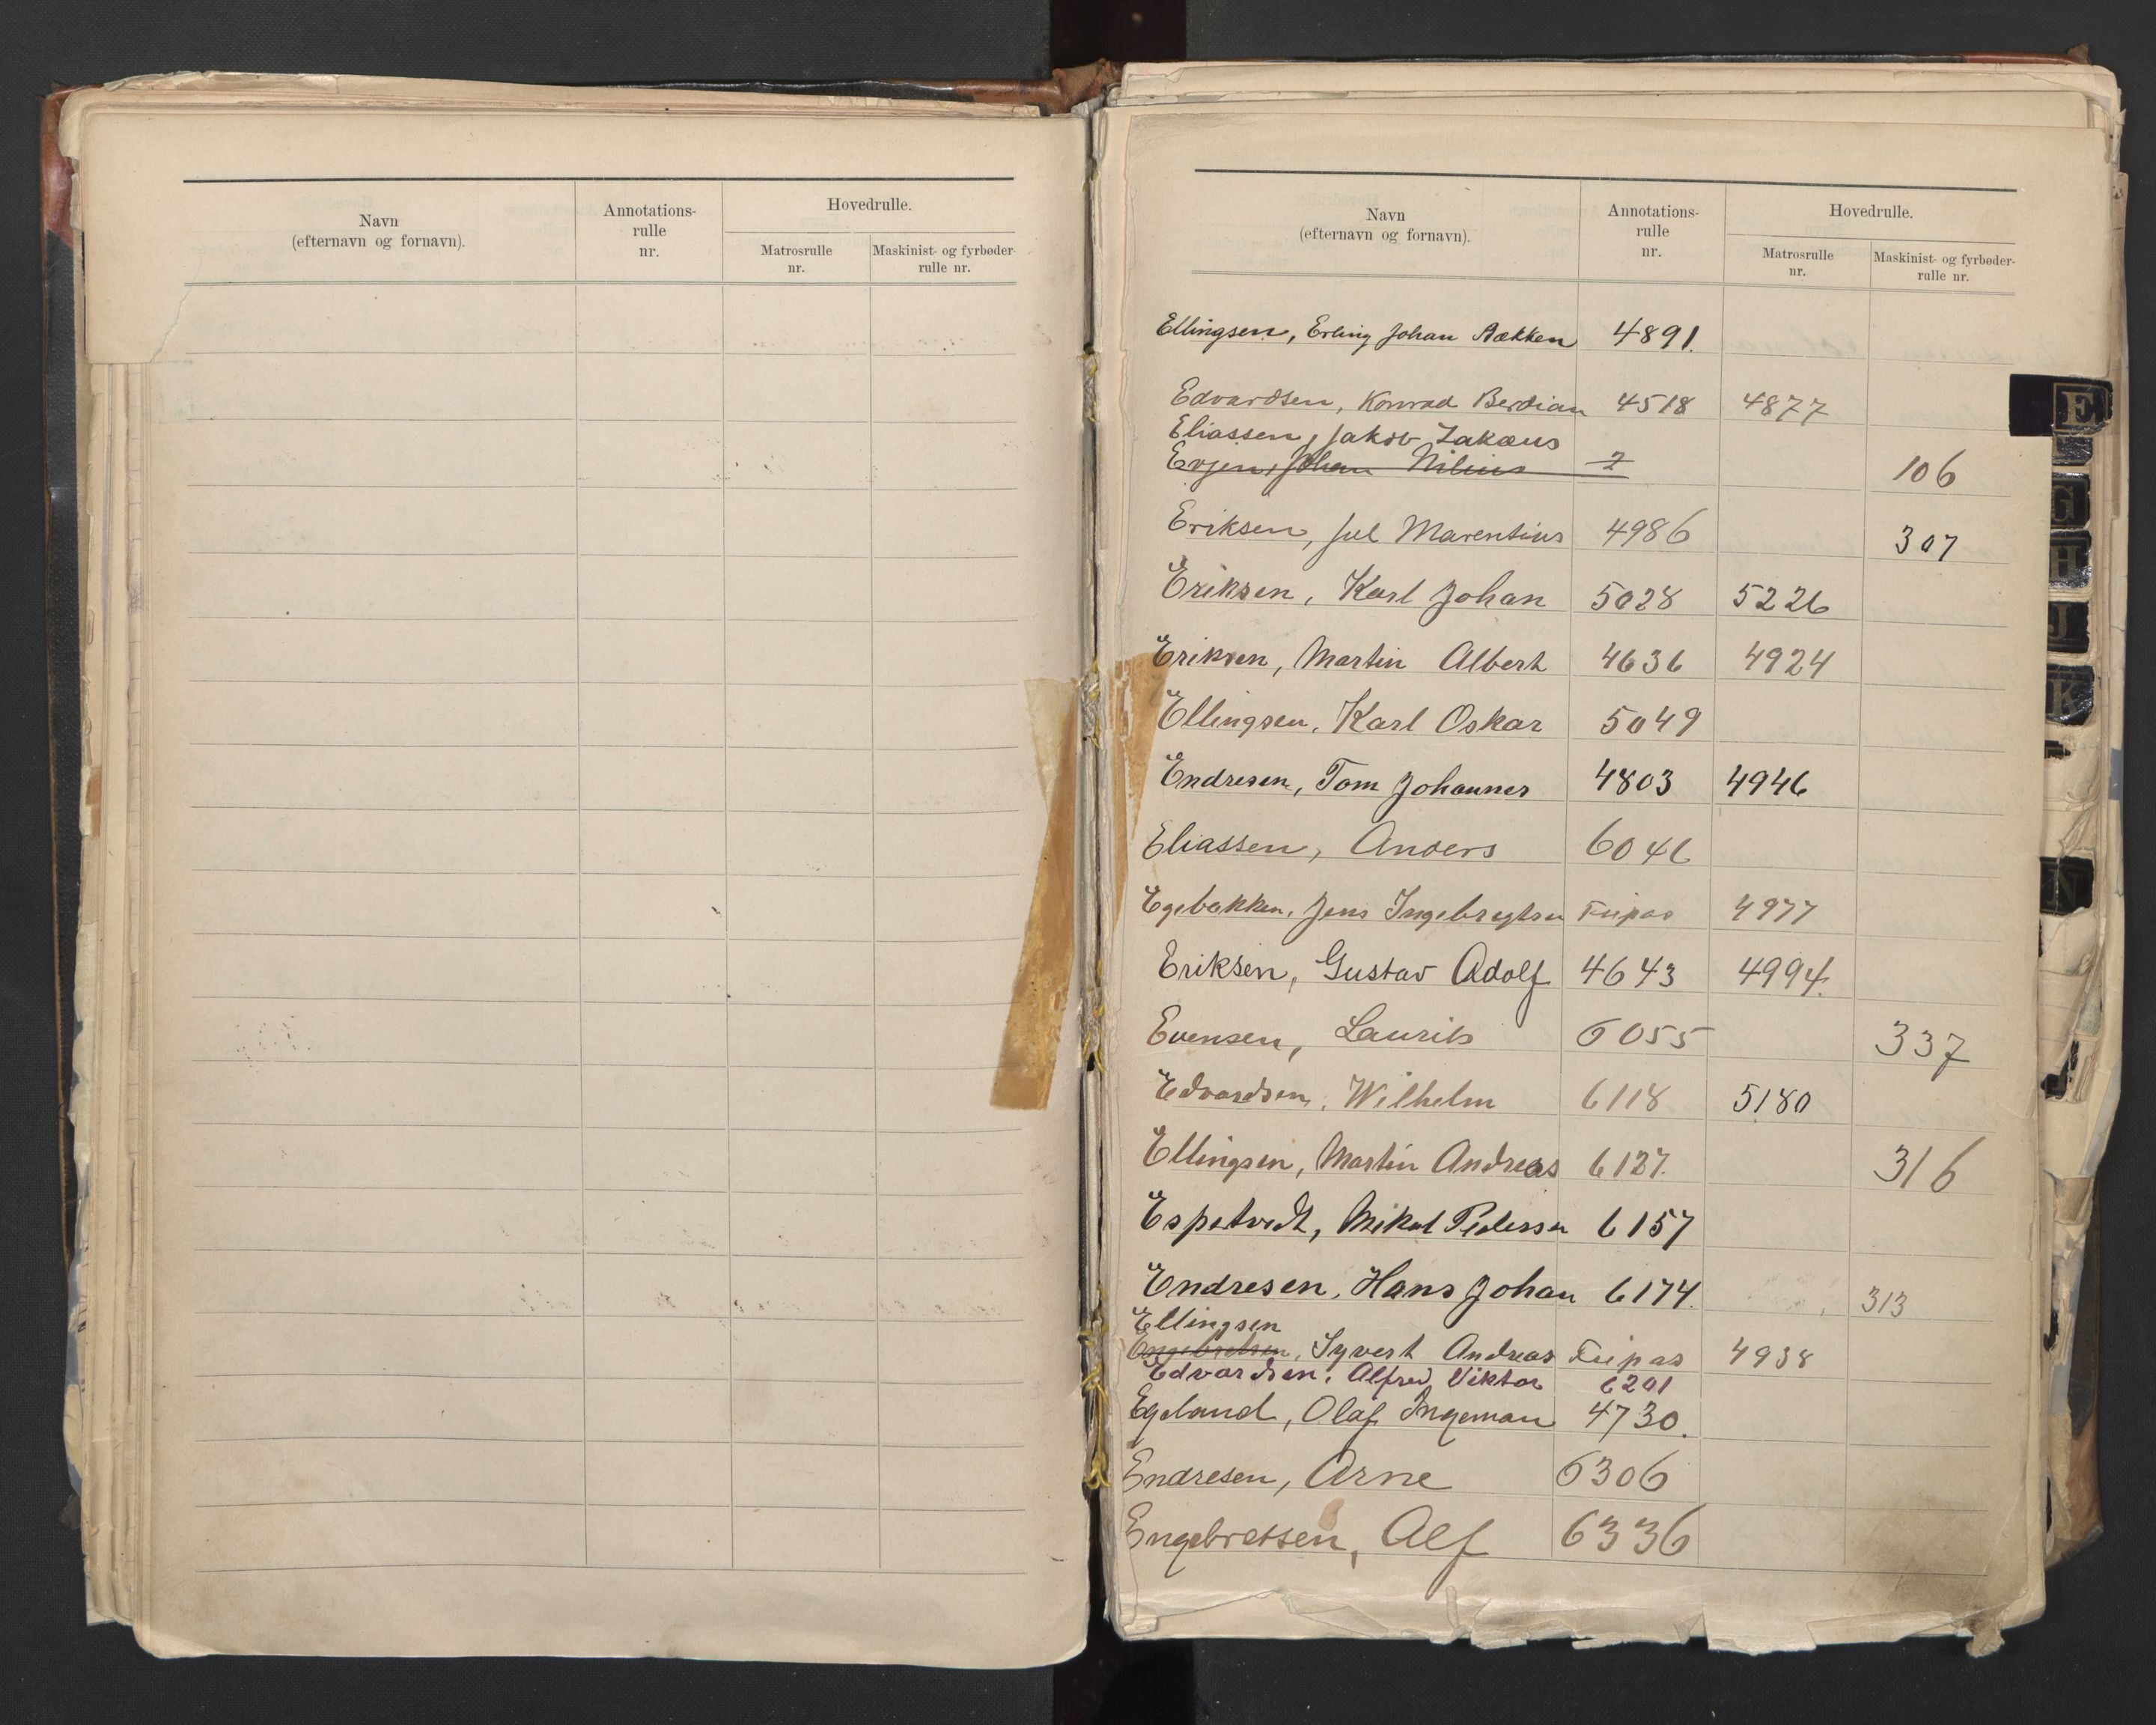 Navn
(efternavn og fornavn).
Annotations-
rulle
nr.
Hovedrulle.
Matrosrulle
nr.
Maskinist- og fyrbøder-
rulle nr.
Navn
(efternavn og fornavn).
Annotations-
rulle
nr.
Hovedrulle.
Matrosrulle
nr.
Maskinist- og fyrbøder-
rulle nr.
Ellingsen, Erling Johan 4891.
Edvardsen, Konrad Berdian 4518 4877
Eliassen, Jakob Zakæus
Evjen, Johan Nilius 2 106
Eriksen, Jul Marentius 4986 307
Eriksen, Karl Johan 5028 5226
Eriksen, Martin Albert 4636 4924
Ellingsen, Karl Oskar 5049
Endresen, Tom Johannes 4803 4946
Eliassen, Anders 6046
Egebakken, Jens Ingebregtsen 4977
Eriksen, Gustav Adolf 4643 4994.
Evensen, Laurits 6055 337
Edvardsen, Wilhelm 6118 5180
Ellingsen, Martin Andreas 6127. 316
Espetvedt, Mikal Pedersen 6157
Endresen, Hans Johan 6174. 313
Ellingsen
Engebretsen, Syvert Andreas 4938
Edvardsen, Alfred Viktor 6201
Egeland, Olaf Ingeman 4730.
Endresen, Arne 6306
Engebretsen, Alf 6336
E
G
H
J
K
N